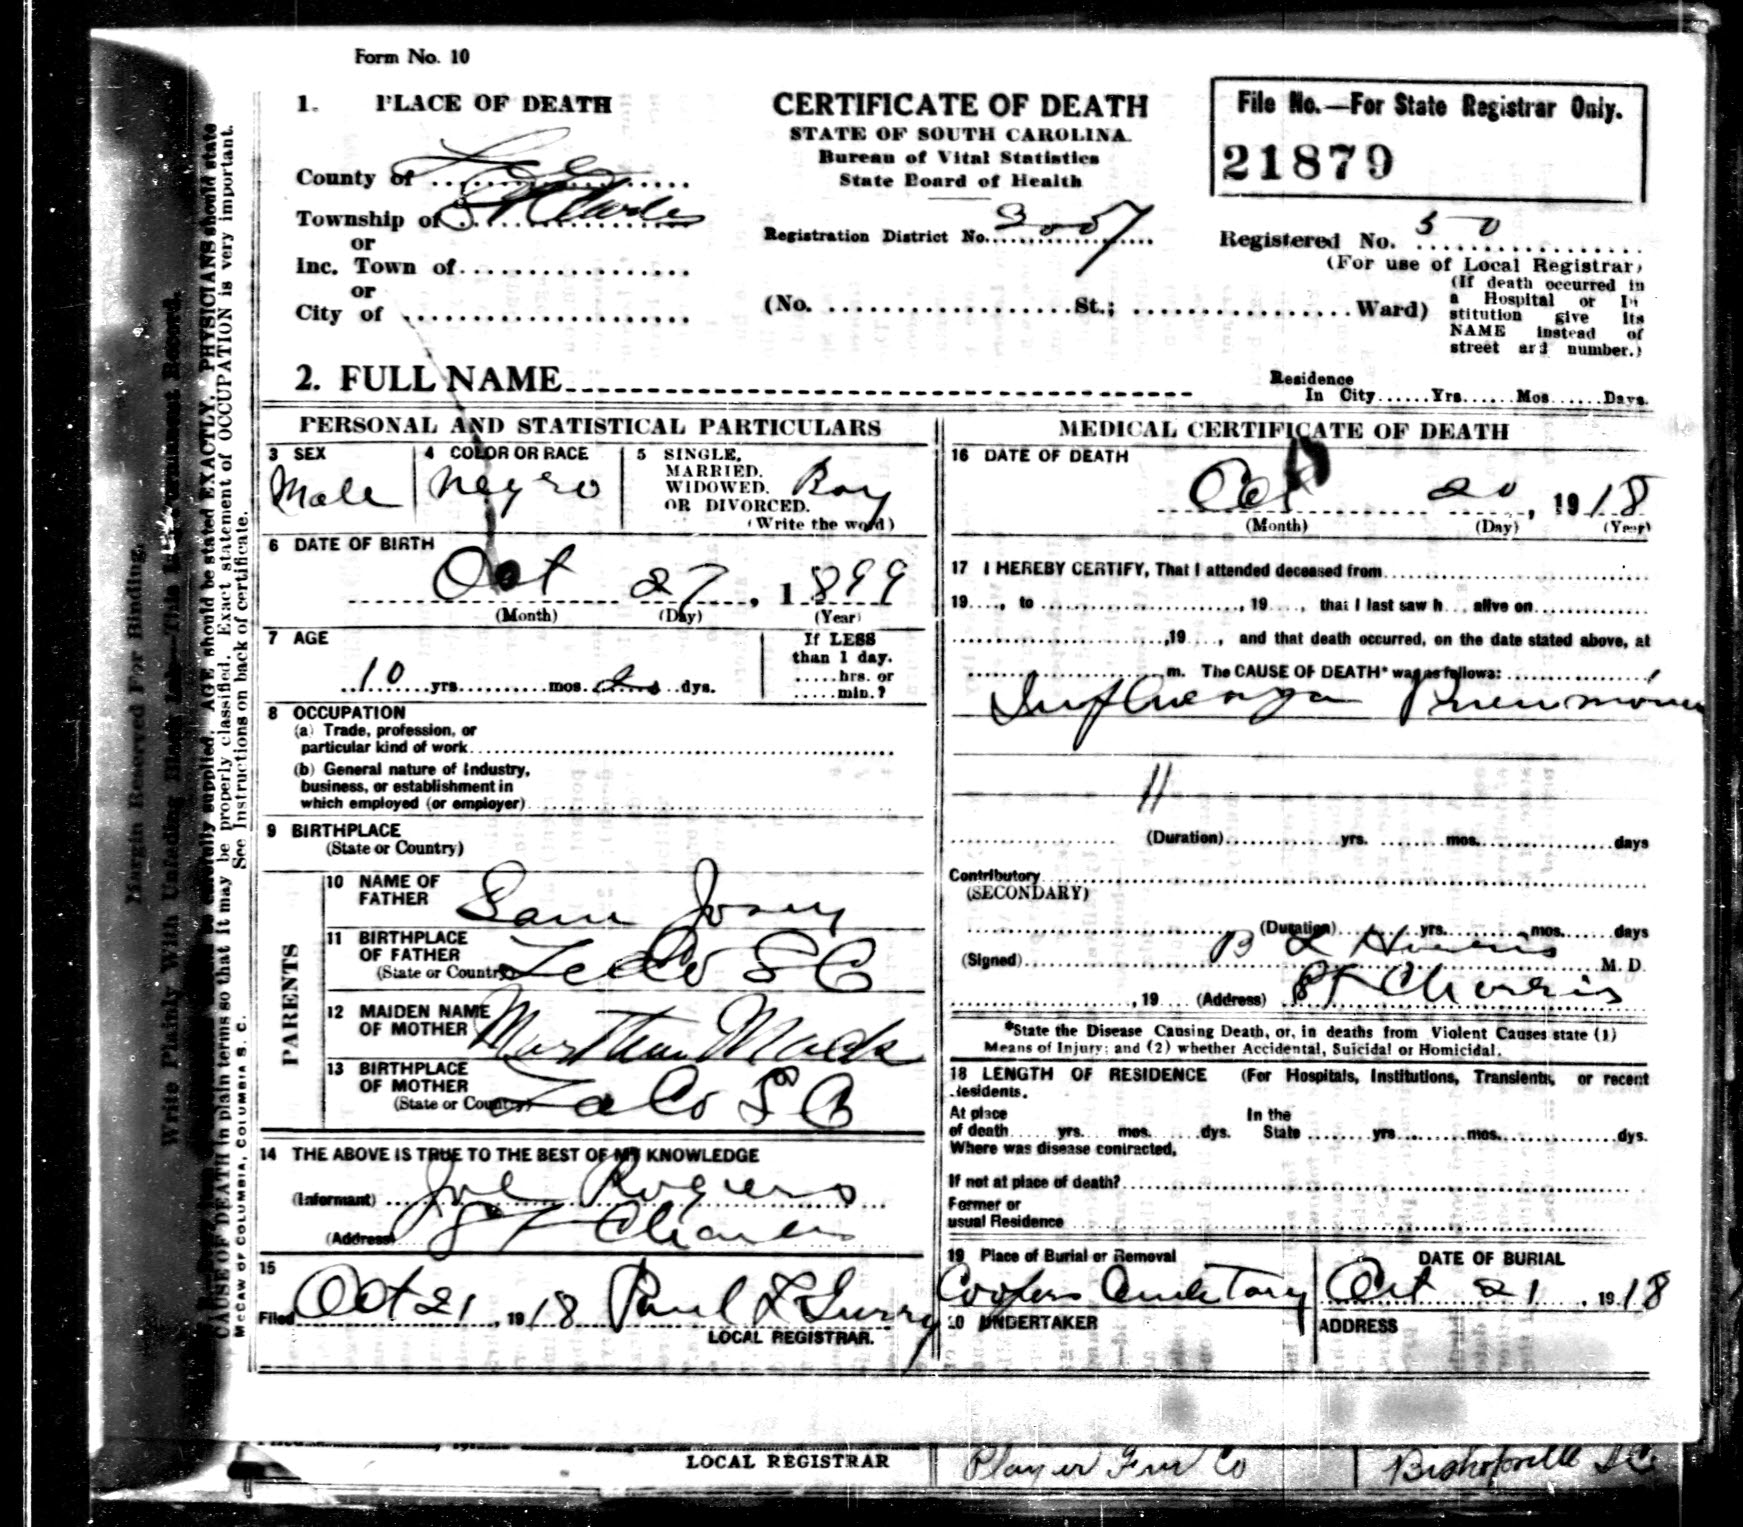 Form No. 10
1. PLACE OF DEATH
County of Lee
Township of St Charles
or
Inc. Town of
or
City of
CERTIFICATE OF DEATH
STATE OF SOUTH CAROLINA.
Bureau of Vital Statistics
State Board of Health
Registration District No. 3007
(No. St.; Ward)
File No.—For State Registrar Only.
21879
Registered No. 50
(For use of Local Registrar)
(If death occurred in
a Hospital or In
stitution give its
NAME instead of
street and number.)
2. FULL NAME
Residence
In City Yrs Mos Days.
PERSONAL AND STATISTICAL PARTICULARS
3 SEX
Male
4 COLOR OR RACE
Negro
5 SINGLE,
MARRIED,
WIDOWED,
OR DIVORCED.
(Write the word)
Boy
6 DATE OF BIRTH
Oct 27, 1899
(Month) (Day) (Year)
7 AGE
10 yrs. mos. dys.
If LESS
than 1 day.
hrs. or
min.?
8 OCCUPATION
(a) Trade, profession, or
particular kind of work
(b) General nature of Industry,
business, or establishment in
which employed (or employer)
9 BIRTHPLACE
(State or Country)
PARENTS
10 NAME OF
FATHER
Sam Josey
11 BIRTHPLACE
OF FATHER
(State or Country)
Lee Co S C
12 MAIDEN NAME
OF MOTHER
Mack
13 BIRTHPLACE
OF MOTHER
(State or Country)
Lee Co S C
14 THE ABOVE IS TRUE TO THE BEST OF MY KNOWLEDGE
(Informant) Joe Rogers
(Address) St Charles
15
Filed Oct 21, 1918 Paul L
LOCAL REGISTRAR.
MEDICAL CERTIFICATE OF DEATH
16 DATE OF DEATH
Oct 20, 1918
(Month) (Day) (Year)
17 I HEREBY CERTIFY, That I attended deceased from
19, to , 19, that I last saw h alive on
,19, and that death occurred, on the date stated above, at
m. The CAUSE OF DEATH* was as follows:
Influenza Pneumonia
11
(Duration) yrs. mos. days
Contributory
(SECONDARY)
(Duration) yrs. mos. days
(Signed) B L Harris M. D.
, 19 (Address) St Charles
*State the Disease Causing Death, or, in deaths from Violent Causes state (1)
Means of Injury; and (2) whether Accidental, Suicidal or Homicidal.
18 LENGTH OF RESIDENCE (For Hospitals, Institutions, Transients, or recent
residents.
At place In the
of death yrs. mos. dys. State yrs mos. dys.
Where was disease contracted,
If not at place of death?
Former or
usual Residence
19 Place of Burial or Removal
Coopers Cemetary
DATE OF BURIAL
Oct 21, 1918
20 UNDERTAKER
ADDRESS
LOCAL REGISTRAR
Player Fur Co
Bishopville S C
Margin Reserved For Binding.
Write Plainly With Unfading Black Ink—This is a Permanent Record.
carefully supplied. AGE should be stated EXACTLY. PHYSICIANS should state
CAUSE OF DEATH in plain terms so that it may be properly classified. Exact statement of OCCUPATION is very important.
See Instructions on back of certificate.
McCAW OF COLUMBIA, COLUMBIA S. C.